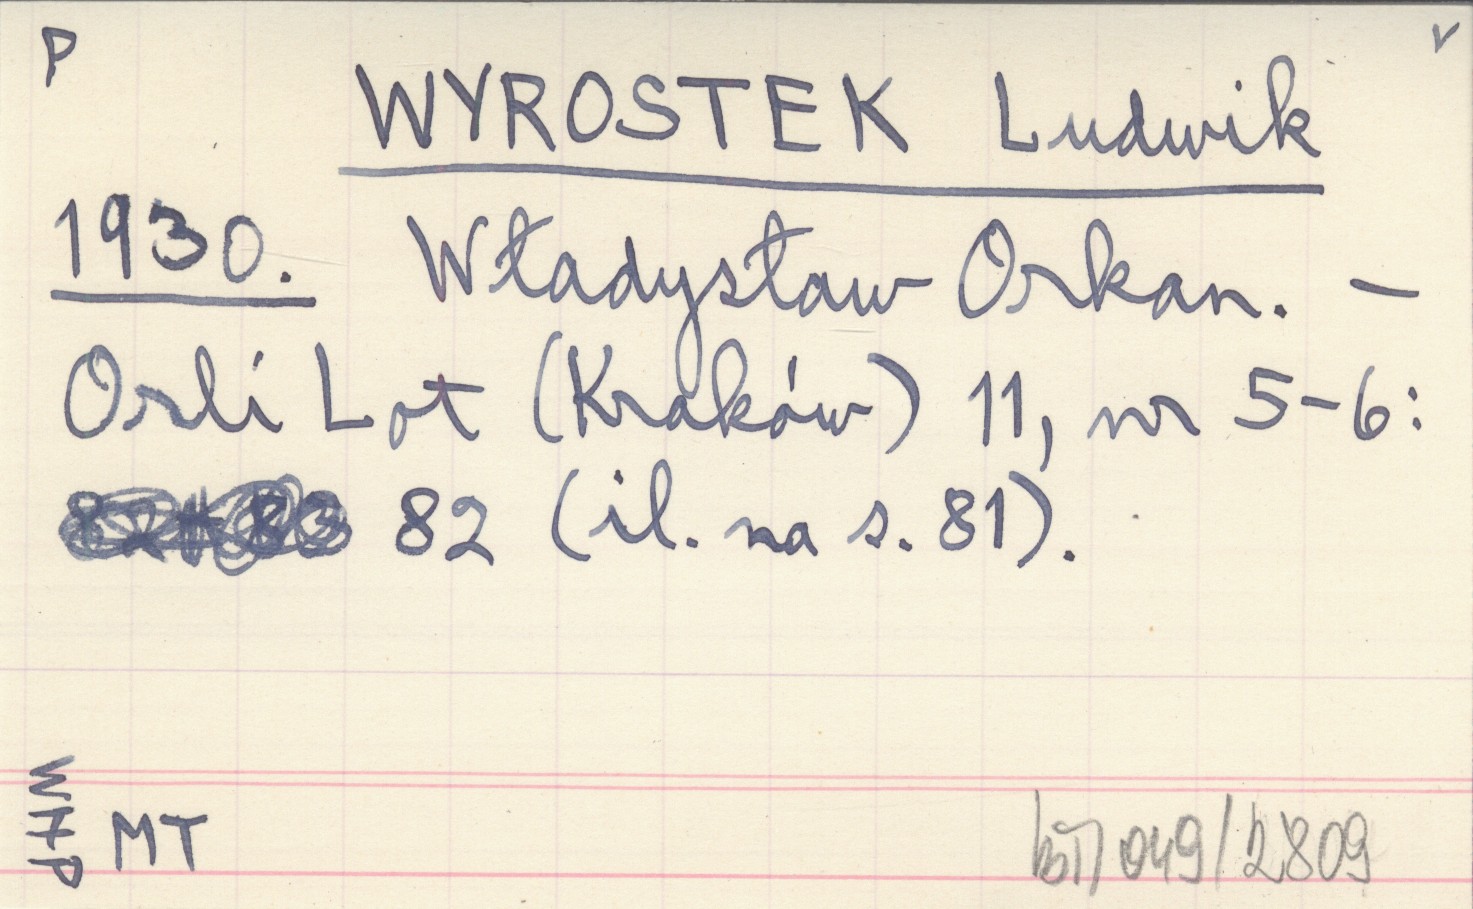 P
v
WYROSTEK Ludwik
1930. Władysław Orkan. –
Orli Lot (Kraków) 11, nr 5–6:
82 (il. na s. 81).
WŻP
MT
049/2809